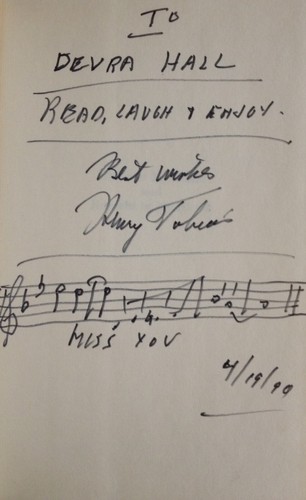 To
DEVRA HALL
READ, LAUGH & ENJOY.
Best wishes
Henry Tobias
MISS YOU
4/19/90